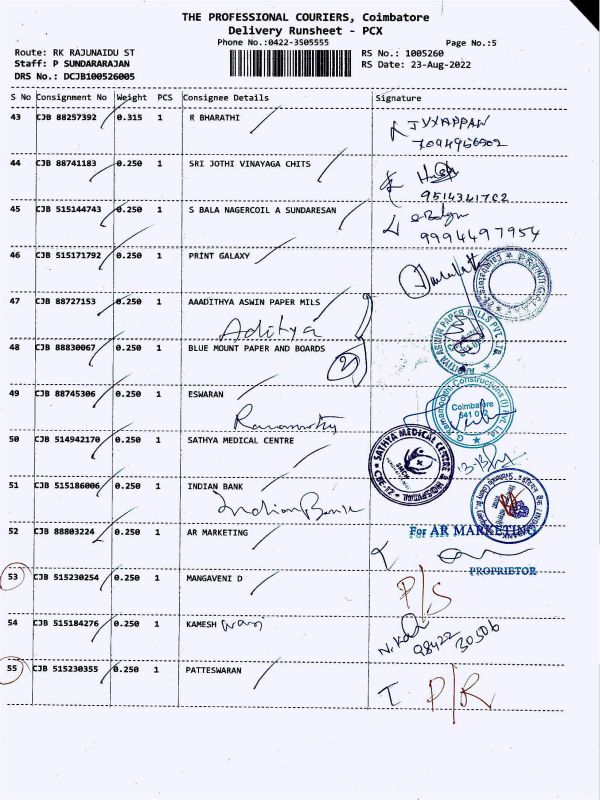 THE PROFESSIONAL COURIERS, Coimbatore
Delivery Runsheet - PCX
Phone No.:0422-3505555
Page No.:5
Route: RK RAJUNAIDU ST
RS No.: 1005260
Staff: P SUNDARARAJAN
RS Date: 23-Aug-2022
DRS No.: DCJB100526005
S No Consignment No Weight PCS Consignee Details Signature
43 CJB 88257392 0.315 1 R BHARATHI
44 CJB 88741183 0.250 1 SRI JOTHI VINAYAGA CHITS
9514341702
45 CJB 515144743 0.250 1 S BALA NAGERCOIL A SUNDARESAN
9994497954
46 CJB 515171792 0.250 1 PRINT GALAXY
47 CJB 88727153 0.250 1 AAADITHYA ASWIN PAPER MILS
Aditya
48 CJB 88830067 0.250 1 BLUE MOUNT PAPER AND BOARDS
2
49 CJB 88745306 0.250 1 ESWARAN
Coimbatore
641 012
50 CJB 514942170 0.250 1 SATHYA MEDICAL CENTRE
SATHYA MEDICAL CENTRE & HOSPITAL
51 CJB 515186006 0.250 1 INDIAN BANK
Indian Bank
52 CJB 88803224 0.250 1 AR MARKETING
For AR MARKETING
PROPRIETOR
53 CJB 515230254 0.250 1 MANGAVENI D
P/S
54 CJB 515184276 0.250 1 KAMESH
98422 30506
55 CJB 515230355 0.250 1 PATTESWARAN
P/R